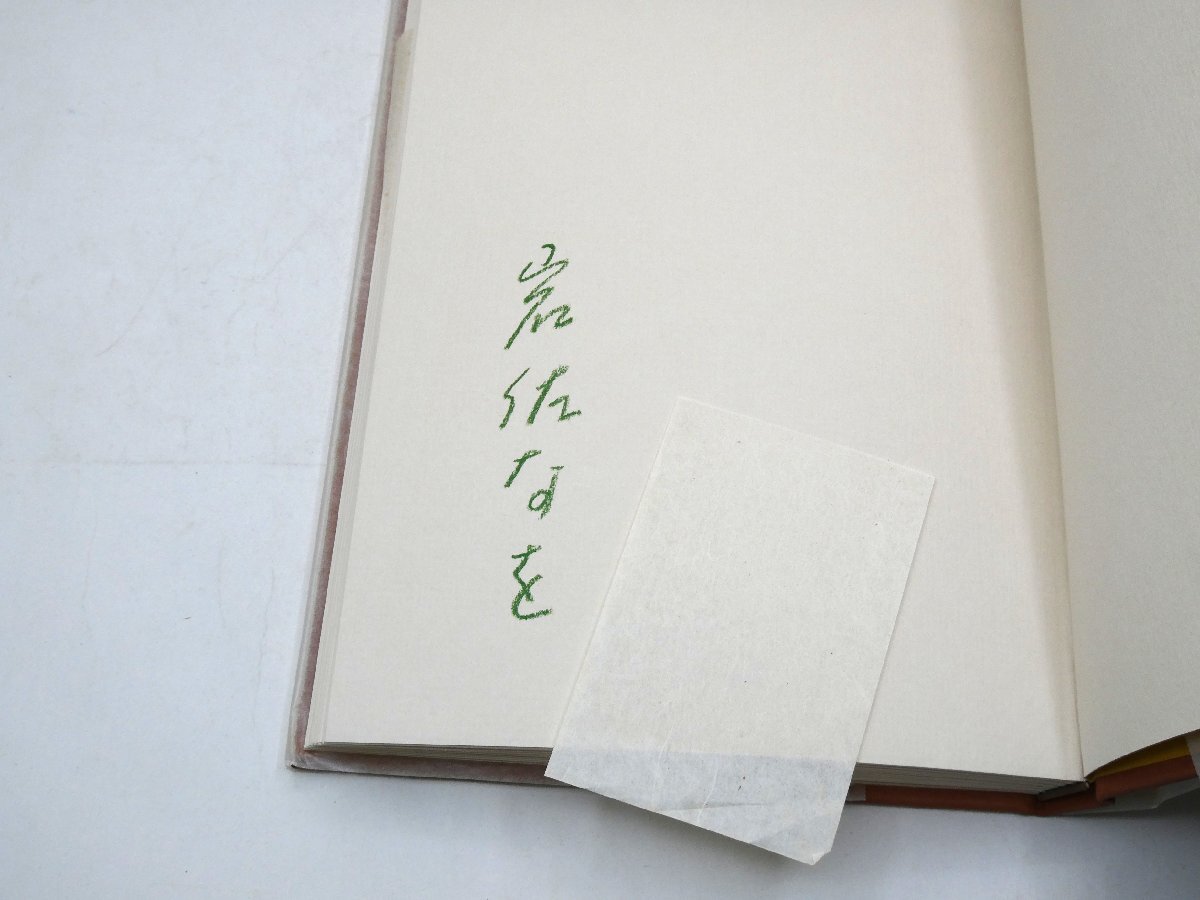 岩佐なを